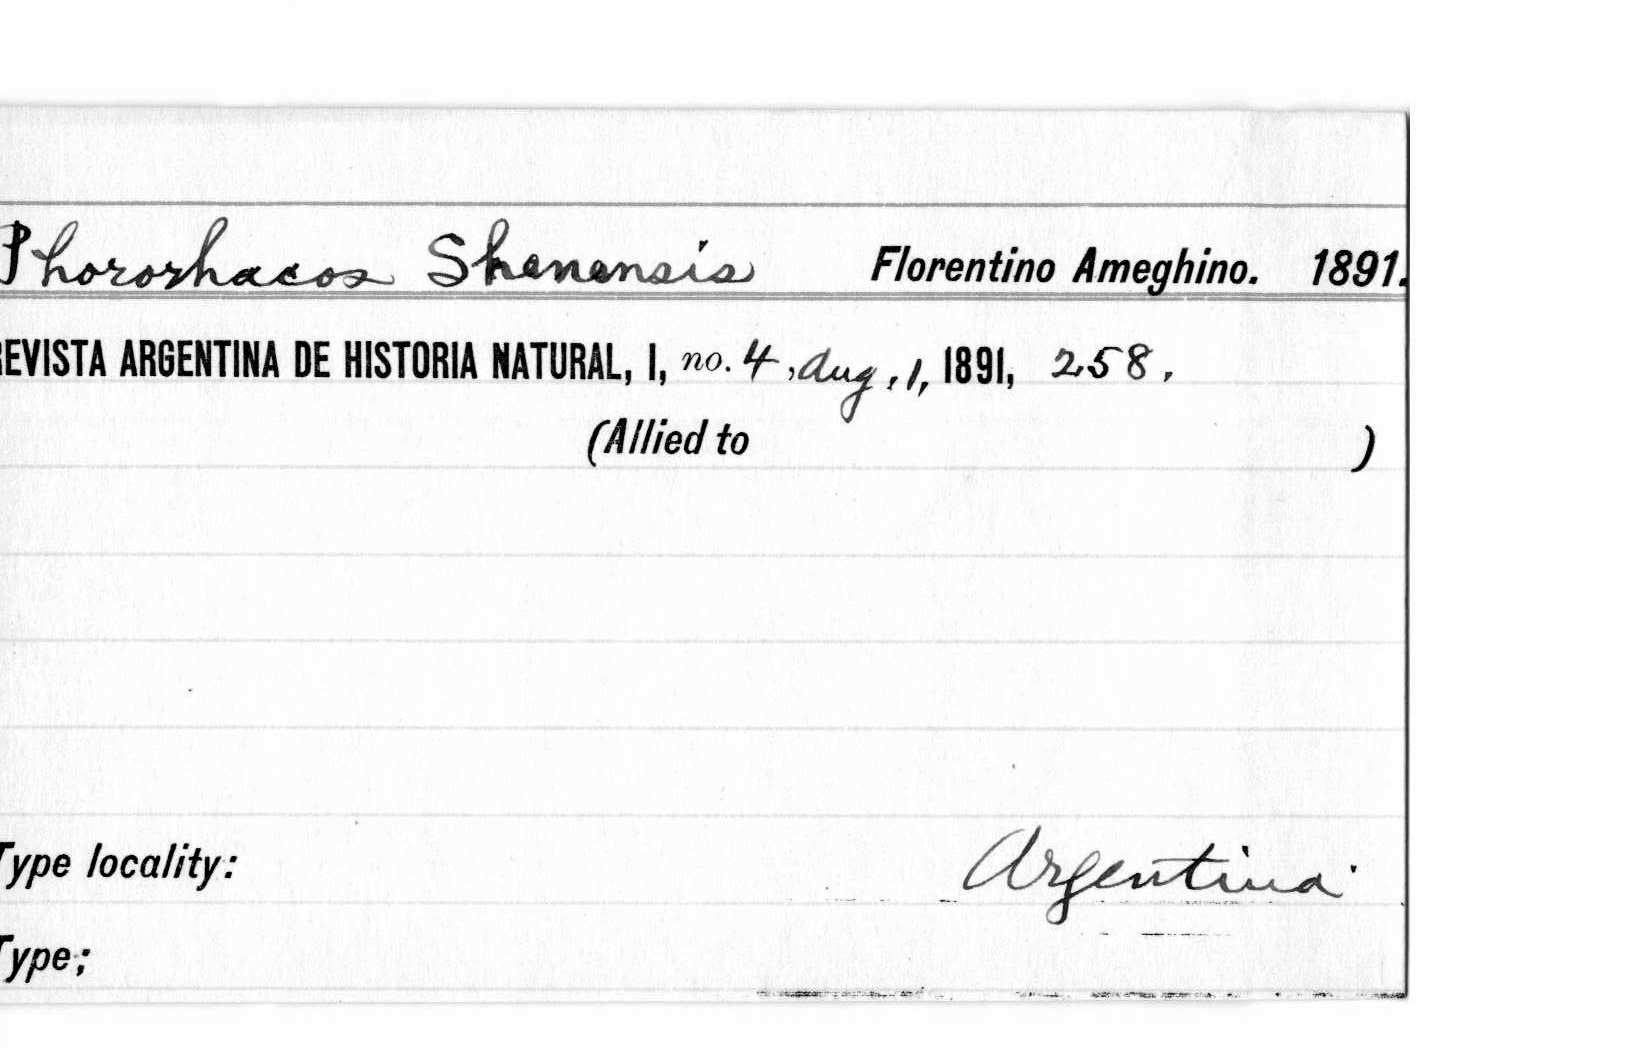 Phororhacos Shenensis Florentino Ameghino. 1891.
REVISTA ARGENTINA DE HISTORIA NATURAL, I, no. 4, Aug. 1, 1891, 258.
(Allied to )
Type locality: Argentina.
Type: